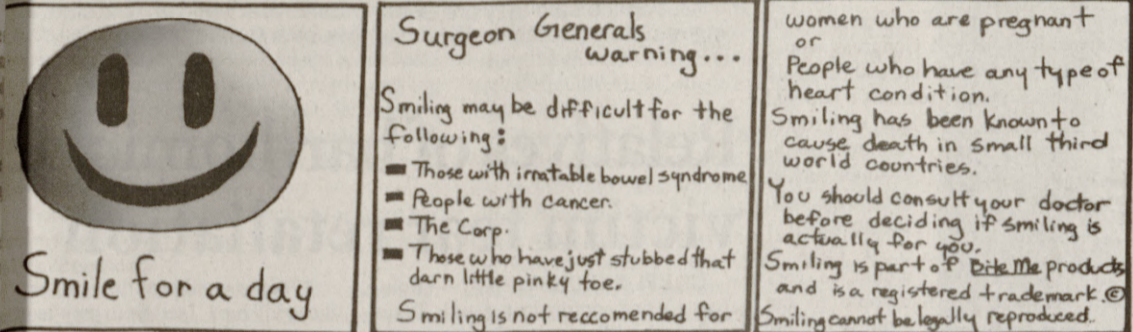 Smile for a day
Surgeon Generals
warning...
Smiling may be difficult for the
following:
Those with irratable bowel syndrome
People with cancer.
The Corp.
Those who have just stubbed that
darn little pinky toe.
Smiling is not reccomended for
women who are pregnant
or
People who have any type of
heart condition.
Smiling has been known to
cause death in small third
world countries.
You should consult your doctor
before deciding if smiling is
actually for you.
Smiling is part of Bite Me products
and is a registered trademark.©
Smiling cannot be legally reproduced.